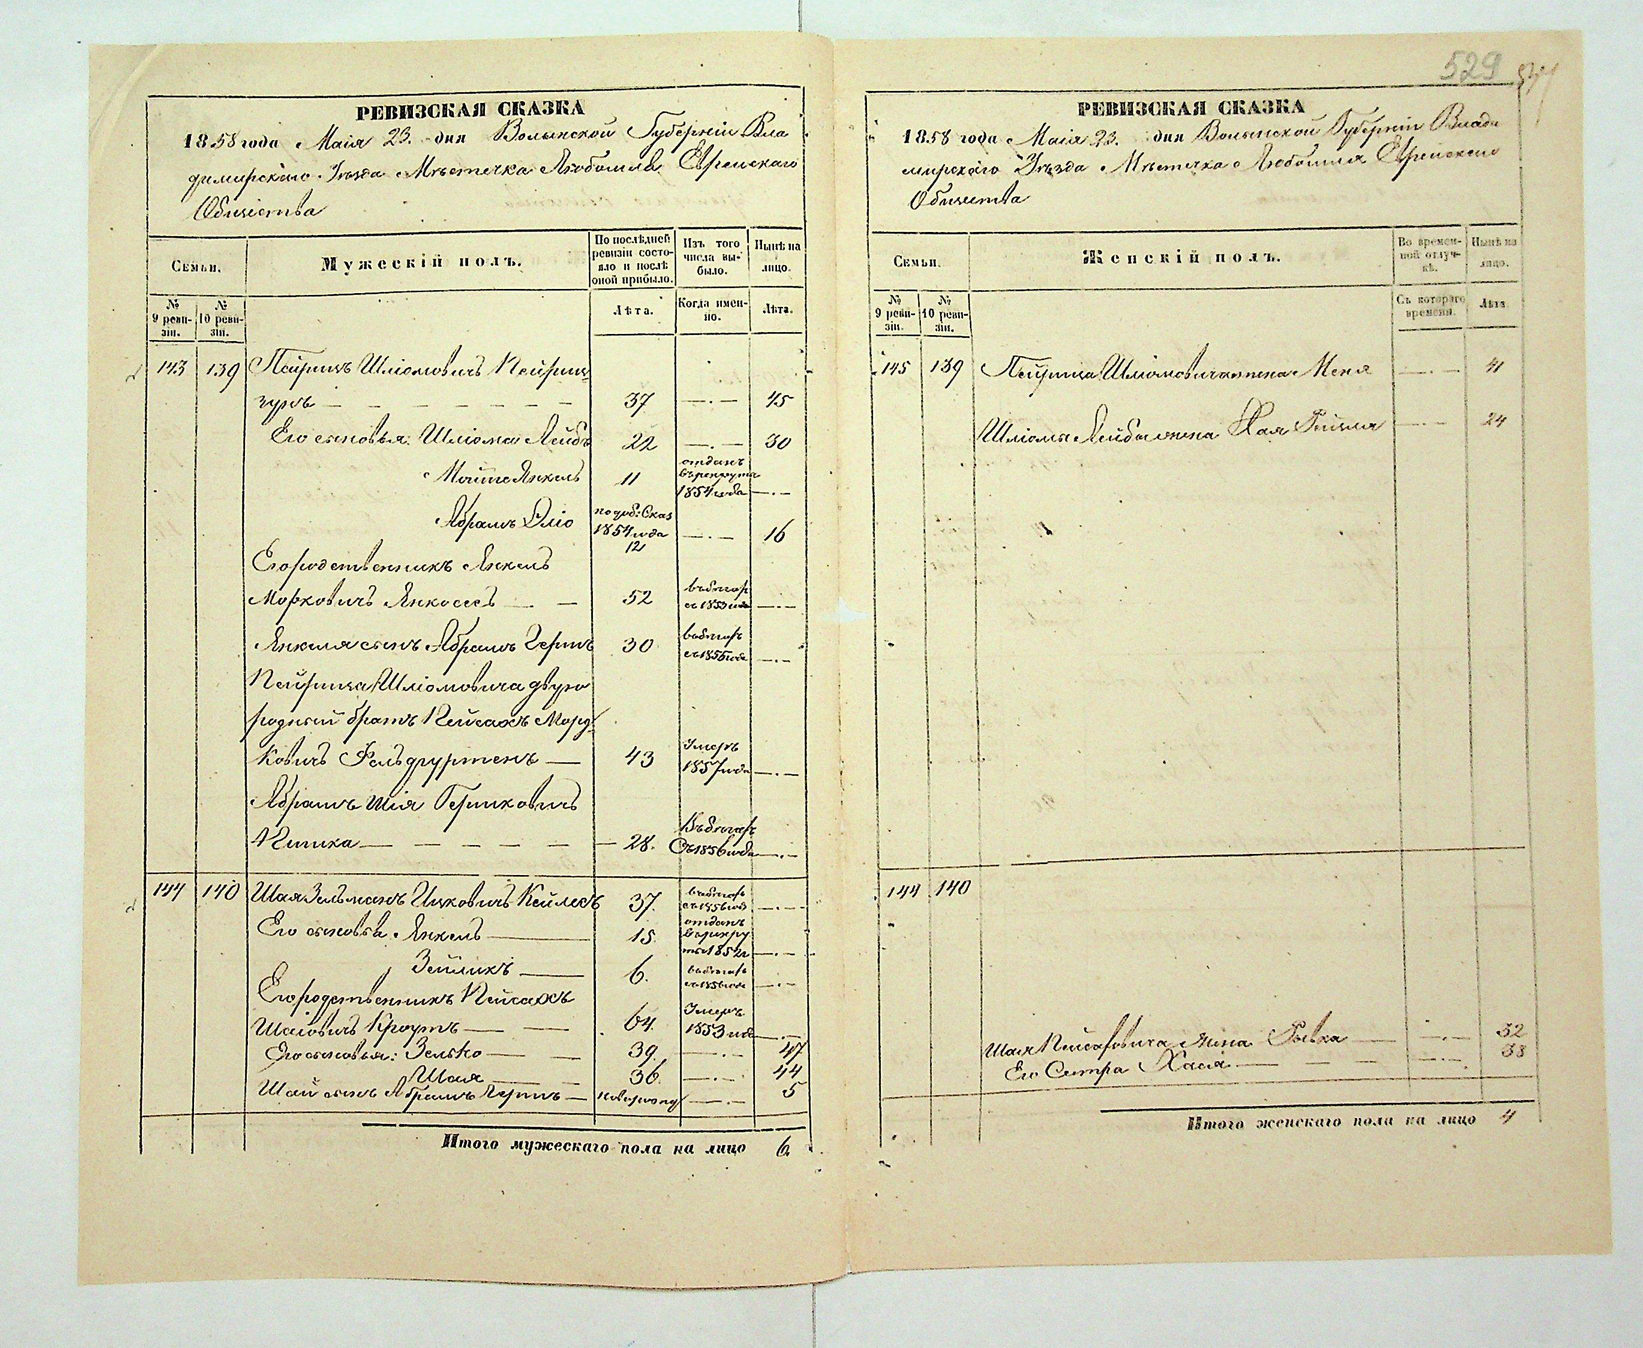 529
РЕВИЗСКАЯ СКАЗКА
1858 года Маія 23. дня Волынской Губерніи Вла
димирскаго Уѣзда Мѣстечка Любомля Еврейскаго
Общества
Семьи.
Мужескій полъ.
По послѣдней ревизіи состояло и послѣ оной прибыло.
Изъ того числа выбыло.
Нынѣ на лицо.
№ 9 ревизіи.
№ 10 ревизіи.
Лѣта.
Когда именно.
Лѣта.
143 139 Пейрицъ Шліомовичъ Пейриц
зуръ — — — — — — — 37 —·— 45
Его сыновья: Шліома Лейбъ 22 —·— 30
Мошко Янкель 11 отданъ въ рекрута 1854 года —·—
Абрамъ Эліо по доб: Сказ 1854 года 12 —·— 16
Его родственникъ Янкель
Морковичъ — — 52 въ бѣгах съ 1853 года —·—
Янкеля сынъ Абрамъ Гершъ 30 въ бѣгахъ —·—
Пейрица Шліомовича двую
родный братъ Пейсахъ Морд
ковичъ — 43 Умеръ 1857 года —·—
Абрамъ Шія Гершковичъ
— — — — — — 28. въ бѣгах съ 1856 года —·—
144 140 Шая Зельманъ Ицковичъ 37. въ бѣгах съ 1856 год —·—
Его сыновья. Янкель — 15. отданъ въ рекруты 1852 г —·—
Зейликъ — 6. въ бѣгах съ 1856 года —·—
Его родственникъ Пейсахъ
Шаіовичъ Кроутъ — — 64. Умеръ 1853 года —·—
Его сыновья: Зелько — — 39. —·— 47
Шая — — 36. —·— 44
Шаи сынъ Абрамъ Гершъ — новорожд —·— 5
Итого мужескаго пола на лицо 6
РЕВИЗСКАЯ СКАЗКА
1858 года Маія 23. дня Волынской Губерніи Влади
мирскаго Уѣзда Мѣстечка Любомля Еврейскаго
Общества
Семьи.
Женскій полъ.
Во временной отлучкѣ.
Нынѣ на лицо.
№ 9 ревизіи.
№ 10 ревизіи.
Съ котораго времени.
Лѣта.
145 139 Пейрица Шліомовича жена Меня —·— 41
Шліомы Лейба жена Хая Рейзля —·— 24
144 140
Шаи Пейсаховича жена Ривка — —·— 32
Его Сестра Хася — — —·— 38
Итого женскаго пола на лицо 4